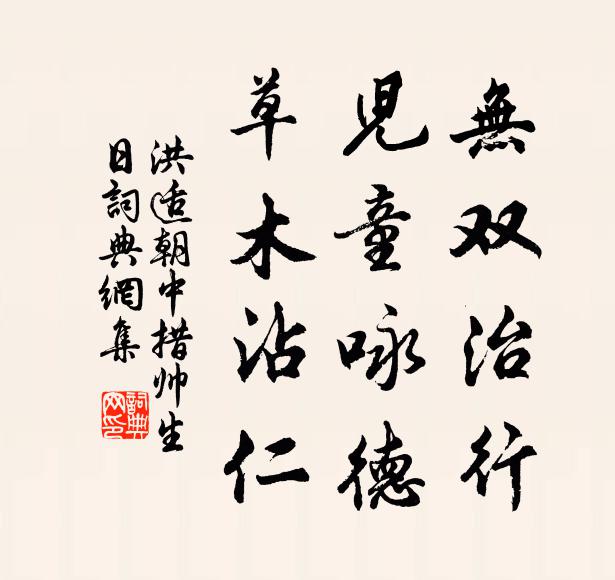 無双治行
児童咏德
草木沾仁
洪适朝中措帅生
日詞典網集
詞典
网印